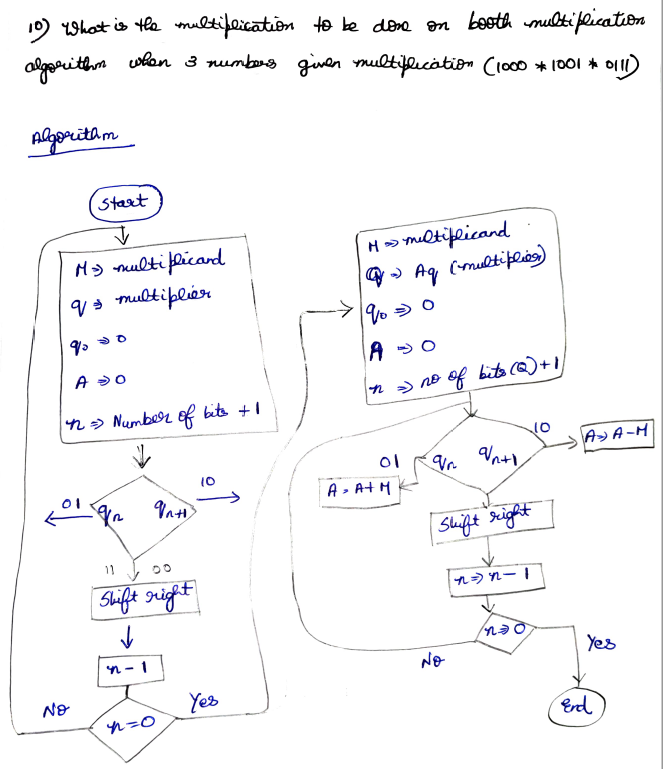 10) What is the multiplication to be done on booth multiplication
algorithm when 3 numbers given multiplication (1000 * 1001 * 0111)
Algorithm
Start
M ⇒ multiplicand
q ⇒ multiplier
q₀ ⇒ 0
A ⇒ 0
n ⇒ Number of bits + 1
01
10
qn qn+1
11 00
Shift right
n - 1
No
Yes
n = 0
M ⇒ multiplicand
Q ⇒ Aq (multiplier)
q₀ ⇒ 0
A ⇒ 0
n ⇒ no of bits (Q) + 1
10
A ⇒ A - M
01
qn qn+1
A = A + M
Shift right
n ⇒ n - 1
n ⇒ 0
Yes
No
End